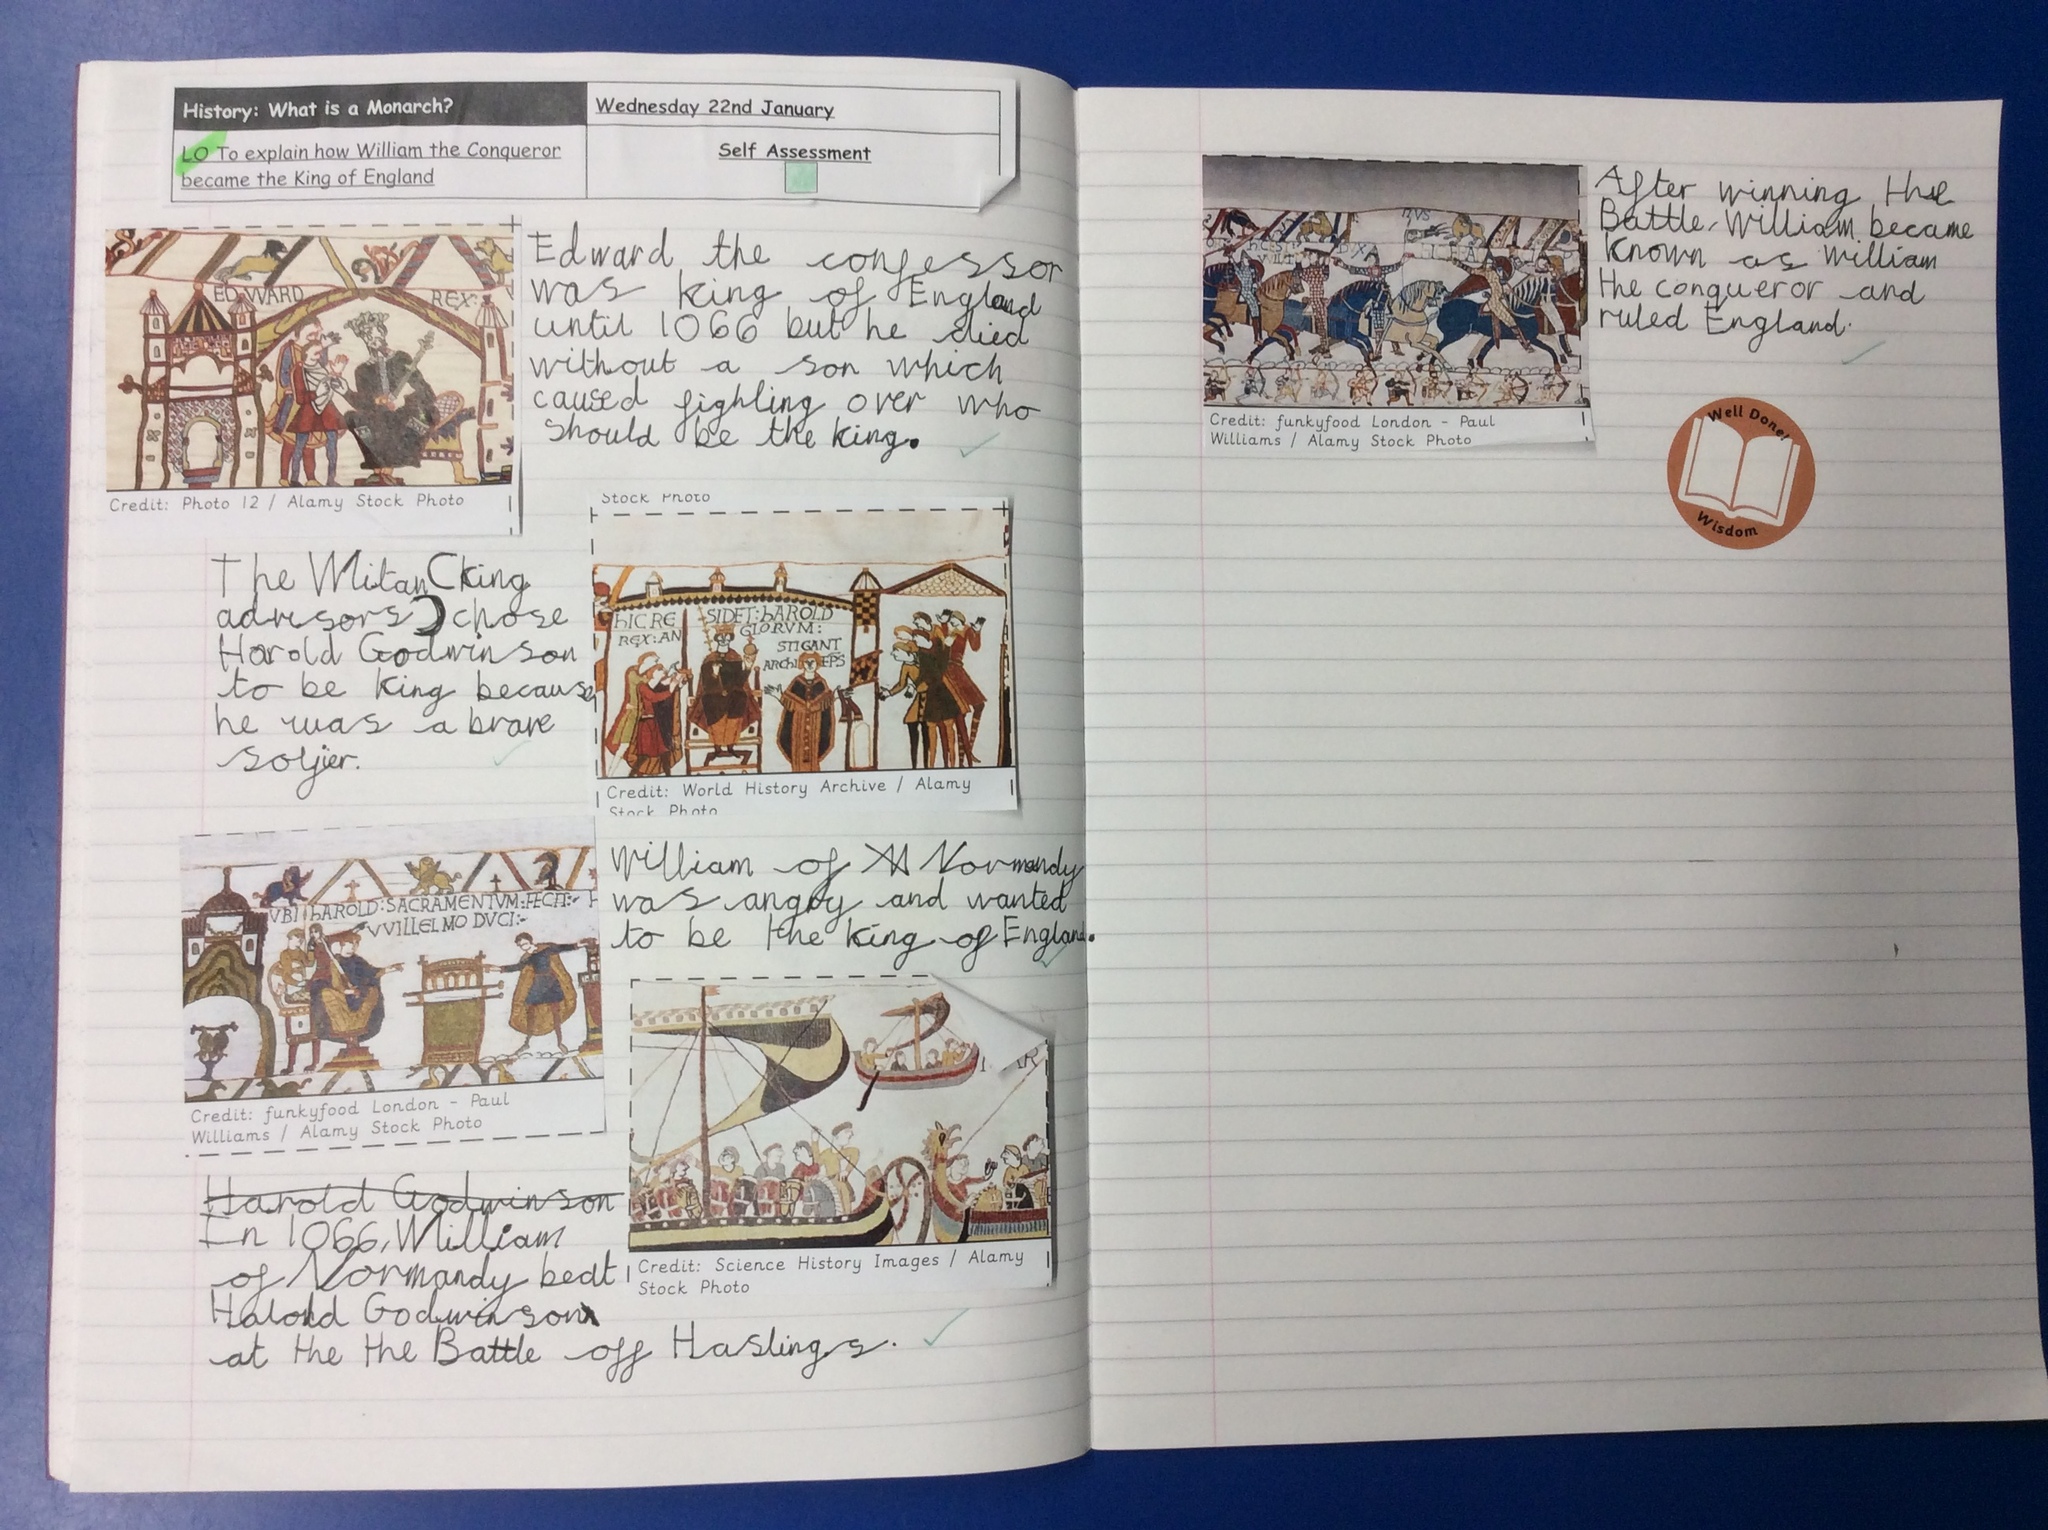 History: What is a Monarch?
Wednesday 22nd January
LO To explain how William the Conqueror
became the King of England
Self Assessment
EDWARD REX:
Credit: Photo 12 / Alamy Stock Photo
Edward the confessor
was king of England
until 1066 but he died
without a son which
caused fighting over who
should be the king.
Stock Photo
The Witan (king
advisors) chose
Harold Godwinson
to be king because
he was a brave
soljier.
HIC RE SIDET: HAROLD
REX: AN GLORVM:
STIGANT
ARCHI EPS
Credit: World History Archive / Alamy
Stock Photo
VBI hAROLD: SACRAMENTVM: FECIT:
VVILLELMO DVCI:
Credit: funkyfood London - Paul
Williams / Alamy Stock Photo
William of Normandy
was angry and wanted
to be the king of England.
Credit: Science History Images / Alamy
Stock Photo
Harold Godwinson
In 1066, William
of Normandy beat
Harold Godwinson
at the the Battle off Hastings.
Credit: funkyfood London - Paul
Williams / Alamy Stock Photo
After winning the
Battle, William became
known as William
the conqueror and
ruled England.
Well Done!
Wisdom